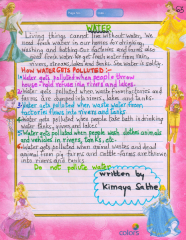 65
WATER
Living things cannot live without water. We
need fresh water in our homes for drinking,
washing and bathing. Our factories and farms also
need fresh water. We get fresh water from rain,
rivers, streams, lakes and tanks. Sea water is salty.
HOW WATER GETS POLLUTED :-
1. Water gets polluted when people throw
house-hold refuse into rivers and lakes.
2. Water gets polluted when waste from factories and
farms are dumped into rivers, lakes and tanks.
3. Water gets polluted when waste water from
factories flows into rivers and tanks
4. Water gets polluted when people take bath in drinking
water tanks, rivers and lakes.
5. Water gets polluted when people wash clothes, animals
and vehicles in rivers, tanks, etc.
6. Water gets polluted when animal wastes and dead
animal from farms and cattle-farms are thrown
into rivers and tanks.
Do not pollute water
written by
Kimaya Sathe
colors